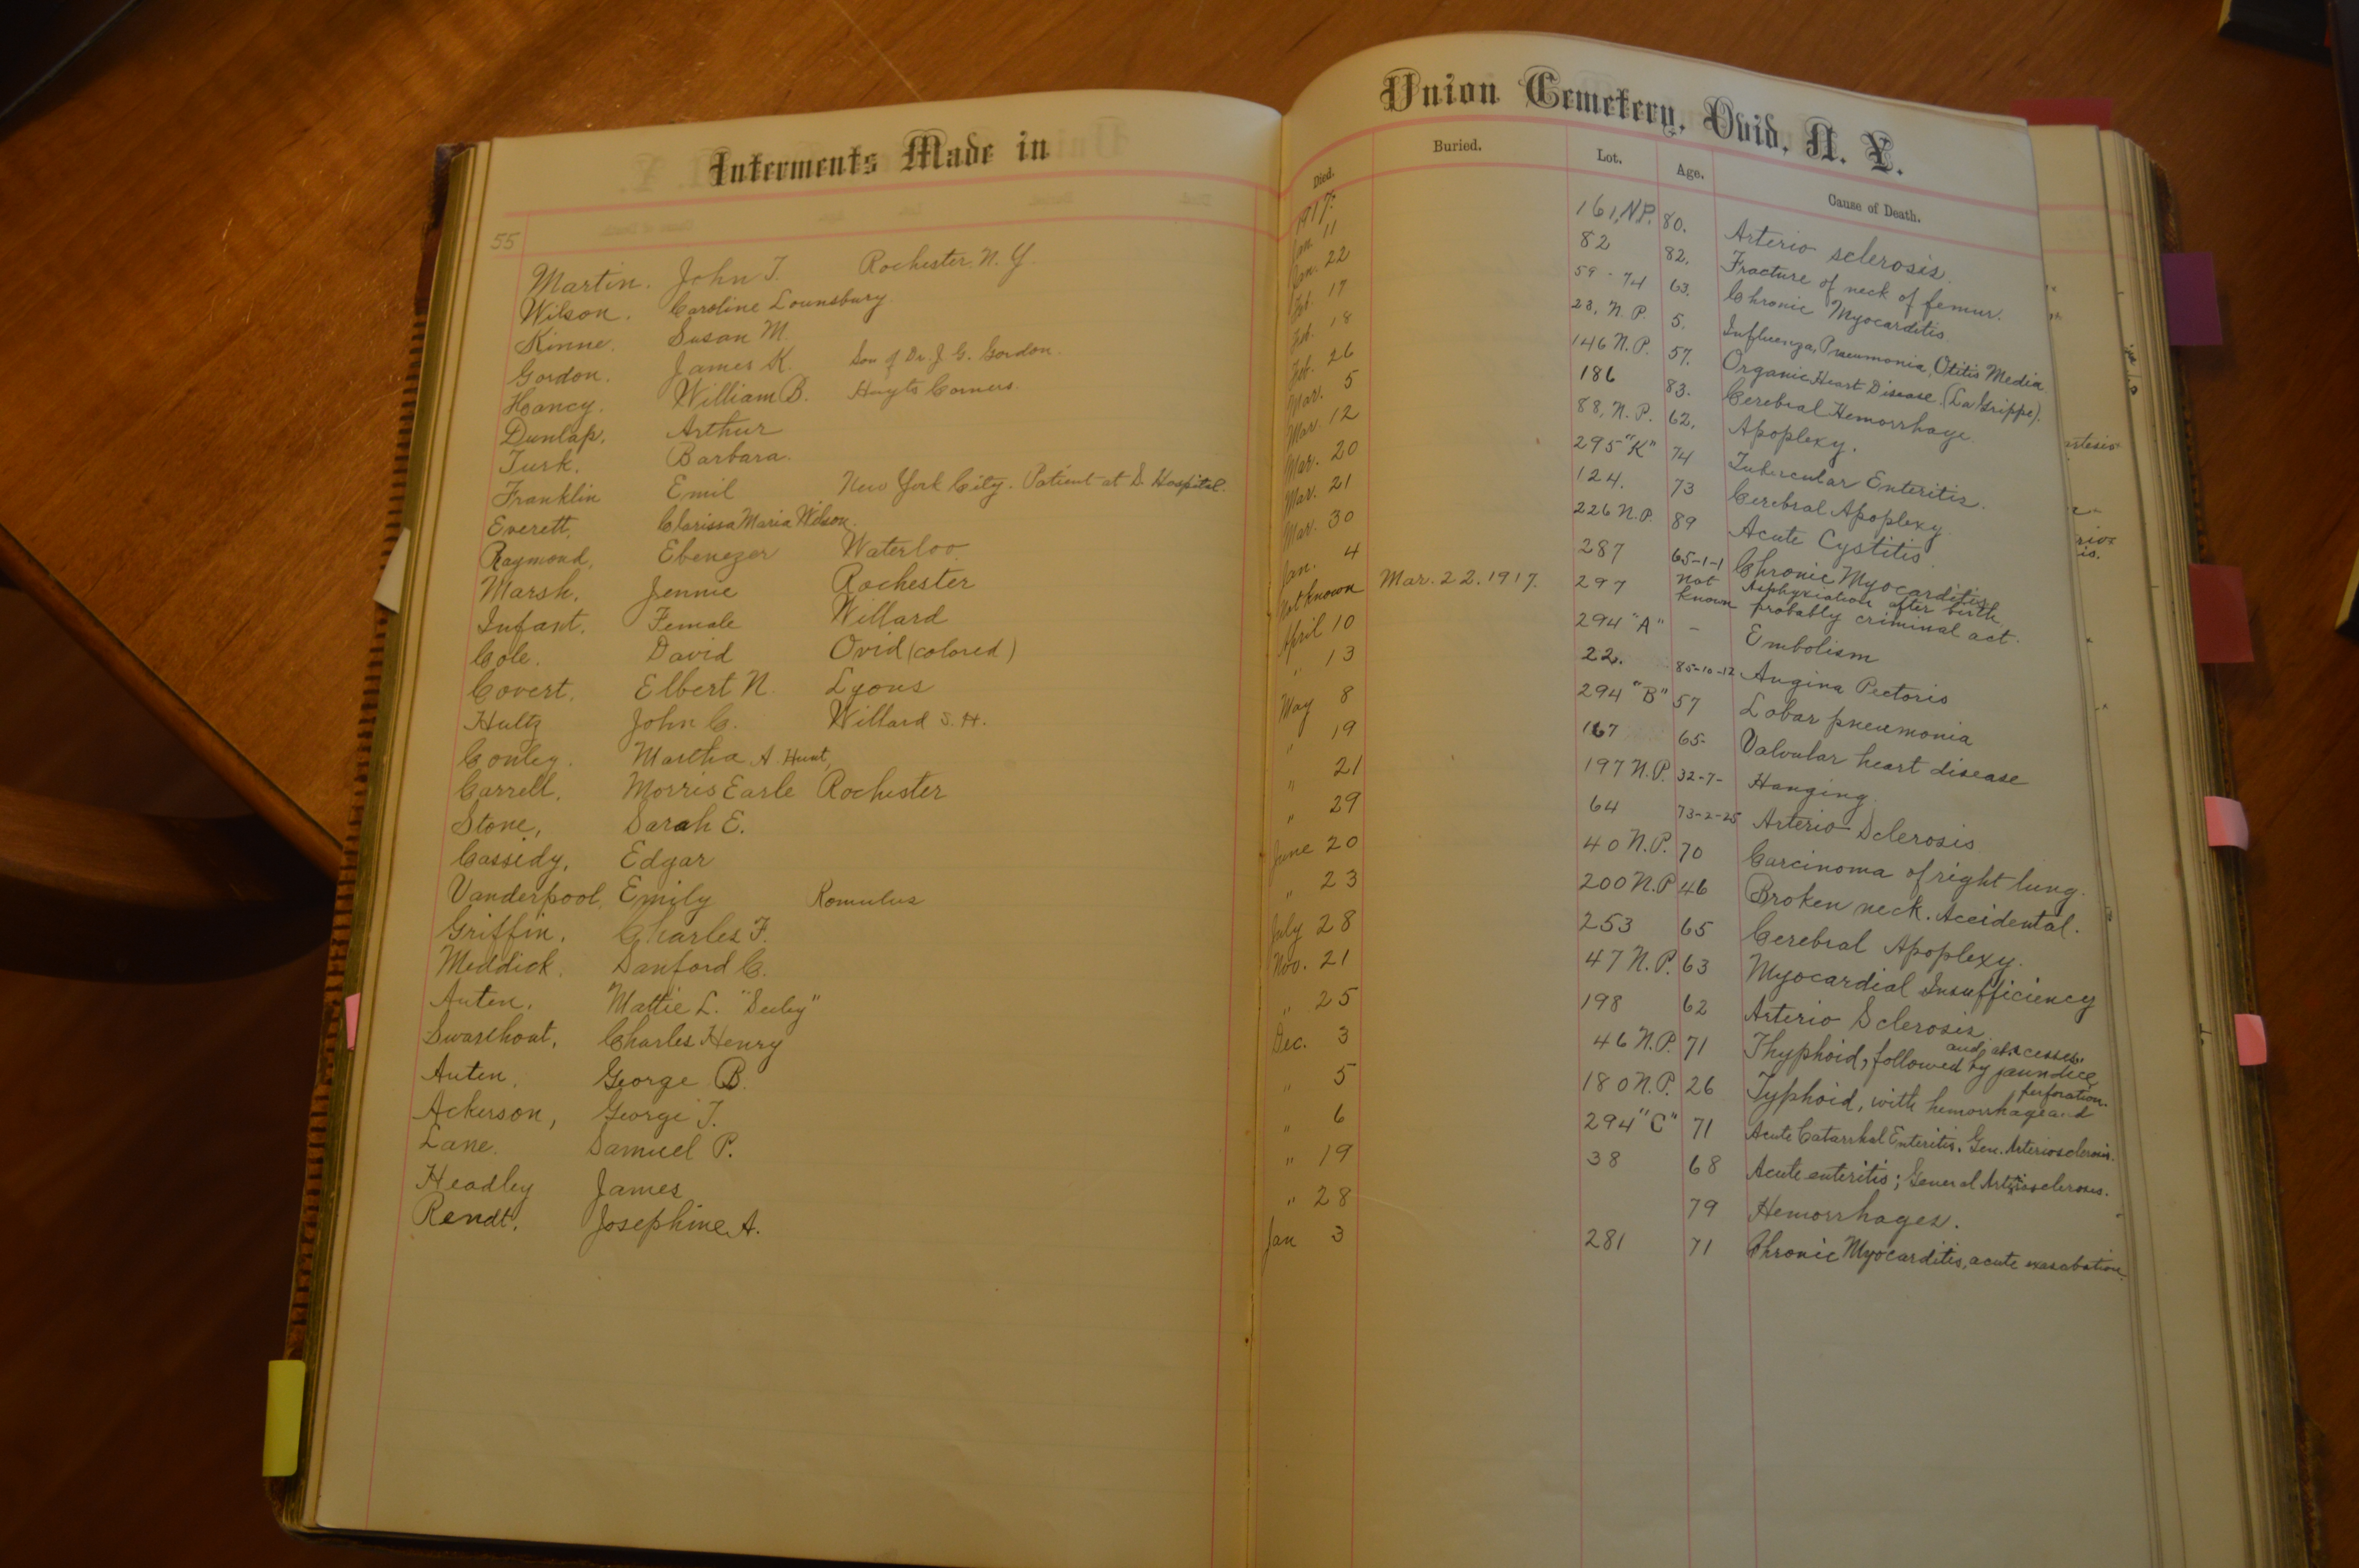 Interments Made in
55
Martin. John T. Rochester. N. Y.
Wilson. Caroline Lounsbury.
Kinne. Susan M.
Gordon. James K. Son of Dr. J. G. Gordon.
Hancy. William B. Hayts Corners.
Dunlap. Arthur
Turk. Barbara.
Franklin Emil New York City. Patient at S. Hospital.
Everett, Clarissa Maria Wilson.
Raymond, Ebenezer Waterloo
Marsh. Jennie Rochester
Infant. Female Willard
Cole. David Ovid (colored)
Covert. Elbert N. Lyons
Hultz John C. Willard S. H.
Conley. Martha A. Hunt,
Carrell. Morris Earle Rochester
Stone, Sarah E.
Cassidy, Edgar
Vanderpool, Emily Romulus
Griffin. Charles F.
Meddick. Danford C.
Auten, Mattie L. "Seeley"
Swarthout, Charles Henry
Auten, George B.
Ackerson, George T.
Lane. Samuel P.
Headley James
Rendt. Josephine A.
Union Cemetery, Ovid, N. Y.
Died. Buried. Lot. Age. Cause of Death.
1917.
Jan. 11 161, N.P. 80. Arterio sclerosis
Jan. 22 82 82. Fracture of neck of femur.
Feb. 17 59-74 63. Chronic Myocarditis
Feb. 18 23, N. P. 5. Influenza, Pneumonia, Otitis Media
Feb. 26 146 N. P. 57. Organic Heart Disease. (La Grippe).
Mar. 5 186 83. Cerebral Hemorrhage
Mar. 12 88, N. P. 62. Apoplexy.
Mar. 20 295 "K" 74 Tubercular Enteritis.
Mar. 21 124. 73 Cerebral Apoplexy
Mar. 30 226 N.P. 89 Acute Cystitis
Jan. 4 287 65-1-1 Chronic Myocarditis
Not known Mar. 22. 1917. 297 Not known Asphyxiation after birth,
probably criminal act.
April 10 294 "A" - Embolism
" 13 22. 85-10-12 Angina Pectoris
May 8 294 "B" 57 Lobar pneumonia
" 19 167 65- Valvular heart disease
" 21 197 N.P. 32-7- Hanging
" 29 64 73-2-25 Arterio Sclerosis
June 20 40 N.P. 70 Carcinoma of right lung.
" 23 200 N.P 46 Broken neck. Accidental.
July 28 253 65 Cerebral Apoplexy.
Nov. 21 47 N.P. 63 Myocardial Insufficiency
" 25 198 62 Arterio Sclerosis
Dec. 3 46 N.P. 71 Thyphoid, followed by jaundice and abscesses.
" 5 180 N.P. 26 Typhoid, with hemorrhage and perforation.
" 6 294 "C" 71 Acute Catarrhal Enteritis. Gen. Arteriosclerosis.
" 19 38 68 Acute enteritis; General Arteriosclerosis.
" 28 79 Hemorrhages.
Jan 3 281 71 Chronic Myocarditis, acute exacabation.